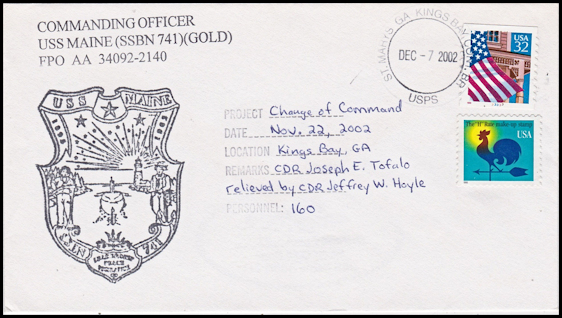 COMMANDING OFFICER
USS MAINE (SSBN 741)(GOLD)
FPO AA 34092-2140
USS MAINE
SSBN 741
ST. MARYS GA KINGS BAY CENTER
DEC - 7 2002
USPS
USA
32
The "H" Rate make-up stamp
USA
PROJECT Change of Command
DATE Nov. 22, 2002
LOCATION Kings Bay, GA
REMARKS CDR Joseph E. Tofalo
relieved by CDR Jeffrey W. Hoyle
PERSONNEL: 160